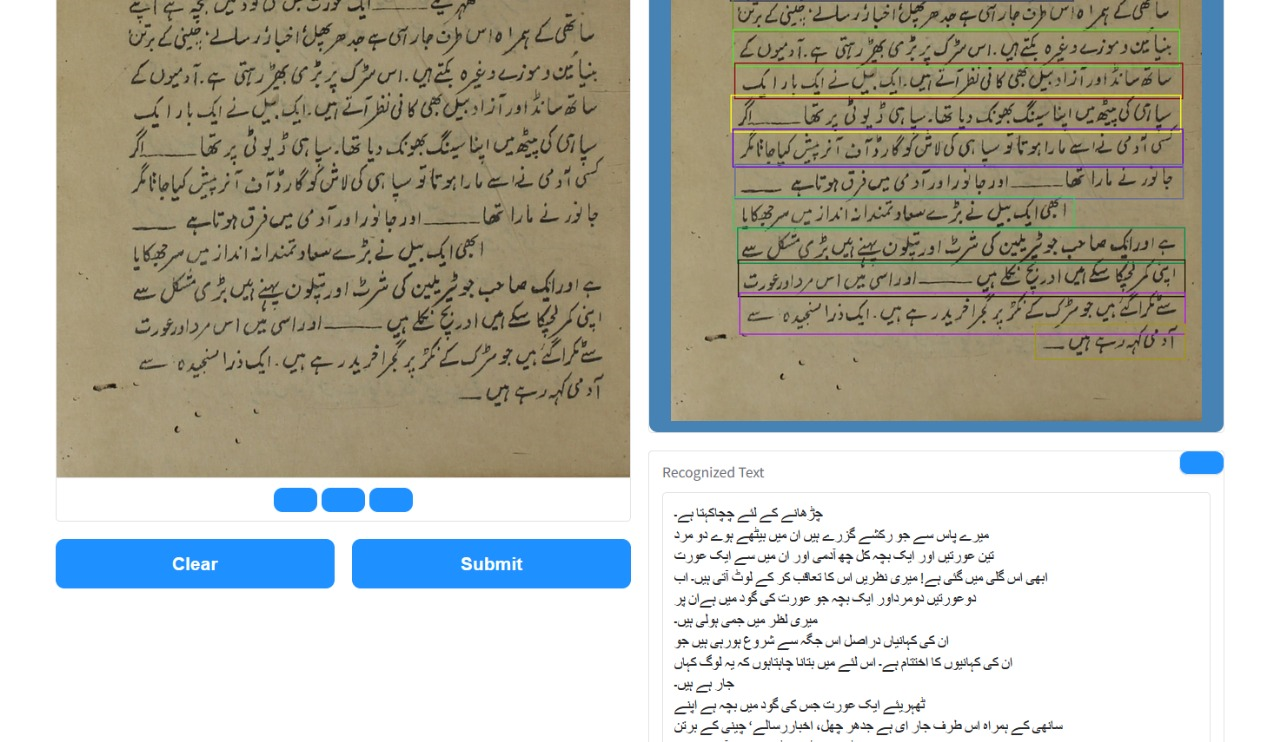 ٹھہریئے ـــــــ ایک عورت جس کی گود میں بچہ ہے اپنے
ساتھی کے ہمراہ اس طرف جار آی ہے جدھر پھل، اخبار، رسالے، چینی کے برتن
بنیائین و موزے وغیرہ بکتے ہیں۔ اس سڑک پر بڑی بھیڑ رہتی ہے۔ آدمیوں کے
ساتھ سانڈ اور آزاد بیل بھی کافی نظر آتے ہیں۔ ایک بیل نے ایک بار ایک
سپاہی کی پیٹھ میں اپنا سینگ بھونک دیا تھا۔ سپاہی ڈیوٹی پر تھا ـــــــ اگر
کسی آدمی نے اسے مارا ہوتا تو سپاہی کی لاش کو گارڈ آف آنر پیش کیا جاتا مگر
جانور نے مارا تھا ـــــــ اور جانور اور آدمی میں فرق ہوتا ہے ـــــــ
ابھی ایک بیل نے بڑے سعادتمندانہ انداز میں سر جھکایا
ہے اور ایک صاحب جو ٹیریلین کی شرٹ اور پتلون پہنے ہیں بڑی مشکل سے
اپنی کمر لچکا سکے ہیں اور بچ نکلے ہیں ـــــــ اور اسی میں اس مرد اور عورت
سے ٹکرا گئے ہیں جو سڑک کے نکڑ پر گجرا خرید رہے ہیں۔ ایک ذرا سنجیدہ سے
آدمی کہہ رہے ہیں ـــــــ
Clear
Submit
ساتھی کے ہمراہ اس طرف جار آی ہے جدھر پھل، اخبار، رسالے، چینی کے برتن
بنیائین و موزے وغیرہ بکتے ہیں۔ اس سڑک پر بڑی بھیڑ رہتی ہے۔ آدمیوں کے
ساتھ سانڈ اور آزاد بیل بھی کافی نظر آتے ہیں۔ ایک بیل نے ایک بار ایک
سپاہی کی پیٹھ میں اپنا سینگ بھونک دیا تھا۔ سپاہی ڈیوٹی پر تھا ـــــــ اگر
کسی آدمی نے اسے مارا ہوتا تو سپاہی کی لاش کو گارڈ آف آنر پیش کیا جاتا مگر
جانور نے مارا تھا ـــــــ اور جانور اور آدمی میں فرق ہوتا ہے ـــــــ
ابھی ایک بیل نے بڑے سعادتمندانہ انداز میں سر جھکایا
ہے اور ایک صاحب جو ٹیریلین کی شرٹ اور پتلون پہنے ہیں بڑی مشکل سے
اپنی کمر لچکا سکے ہیں اور بچ نکلے ہیں ـــــــ اور اسی میں اس مرد اور عورت
سے ٹکرا گئے ہیں جو سڑک کے نکڑ پر گجرا خرید رہے ہیں۔ ایک ذرا سنجیدہ سے
آدمی کہہ رہے ہیں ـــــــ
Recognized Text
چڑھانے کے لئے چچاکہتا ہے۔
میرے پاس سے جو رکشے گزرے ہیں ان میں بیٹھے ہوے دو مرد
تین عورتیں اور ایک بچہ کل چھ آدمی اور ان میں سے ایک عورت
ابھی اس گلی میں گئی ہے! میری نظریں اس کا تعاقب کر کے لوٹ آتی ہیں۔ اب
دوعورتیں دومرداور ایک بچہ جو عورت کی گود میں ہےان پر
میری لظر میں جمی ہولی ہیں۔
ان کی کہانیاں دراصل اس جگہ سے شروع ہورہی ہیں جو
ان کی کہانیوں کا اختتام ہے۔ اس لئے میں بتانا چاہتاہوں کہ یہ لوگ کہاں
جار ہے ہیں۔
ٹھہریئے ایک عورت جس کی گود میں بچہ ہے اپنے
ساتھی کے ہمراہ اس طرف جار ای ہے جدھر چھل، اخباررسالے‘ چینی کے برتن